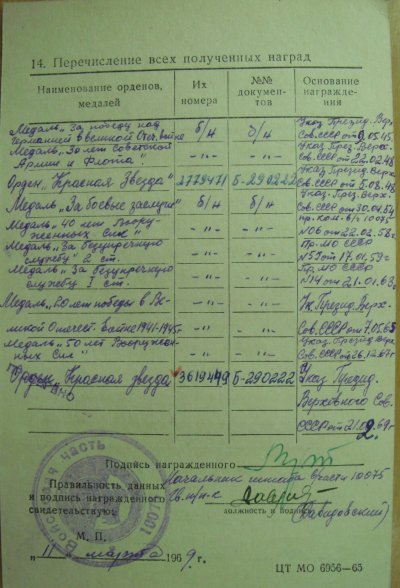 14. Перечисление всех полученных наград
Наименование орденов, медалей
Их номера
№№ документов
Основание награждения
Медаль „За победу над б/н б/н Указ Презид. Вер.
Германией в Великой Отеч. войне Сов. СССР от 9.05.45
Медаль „30 лет Советской -"- -"- Указ Презид. Верх.
Армии и Флота" Сов. СССР от 22.02.48
Орден „Красная Звезда" 2779471 Б-290222 Сов. СССР от 5.08.48
Медаль „За боевые заслуги" б/н б/н Указ. През. Верх.
Сов. СССР от 30.04.54
Медаль „40 лет Воору- -"- -"-
женных Сил" №06 от 22.02.58г.
Медаль „За безупречную -"- -"- Пр. МО СССР
службу" 2 ст. от 17.01.59г
Медаль „За безупречную -"- -"- Пр. МО СССР
службу" I ст. №14 от 21.01.63г.
Медаль „20 лет победы в Ве- -"- -"- Ук. Презид. Верх.
ликой Отечеств. войне 1941-1945г. Сов. СССР от 7.05.65
Медаль „50 лет Вооружен- -"- -"- Указ. Презид. Верх.
ных Сил" Сов. СССР от 26.12.67г
Орден „Красная звезда" 3619449 Б-290222 Указ Презид.
Верховного Сов.
СССР от 21.02.69г
Подпись награжденного
Правильность данных
и подпись награжденного
свидетельствую:
Начальник штаба в/части 10075
должность и подпись
М. П.
„11" марта 1969 г.
ЦТ МО 6956—65